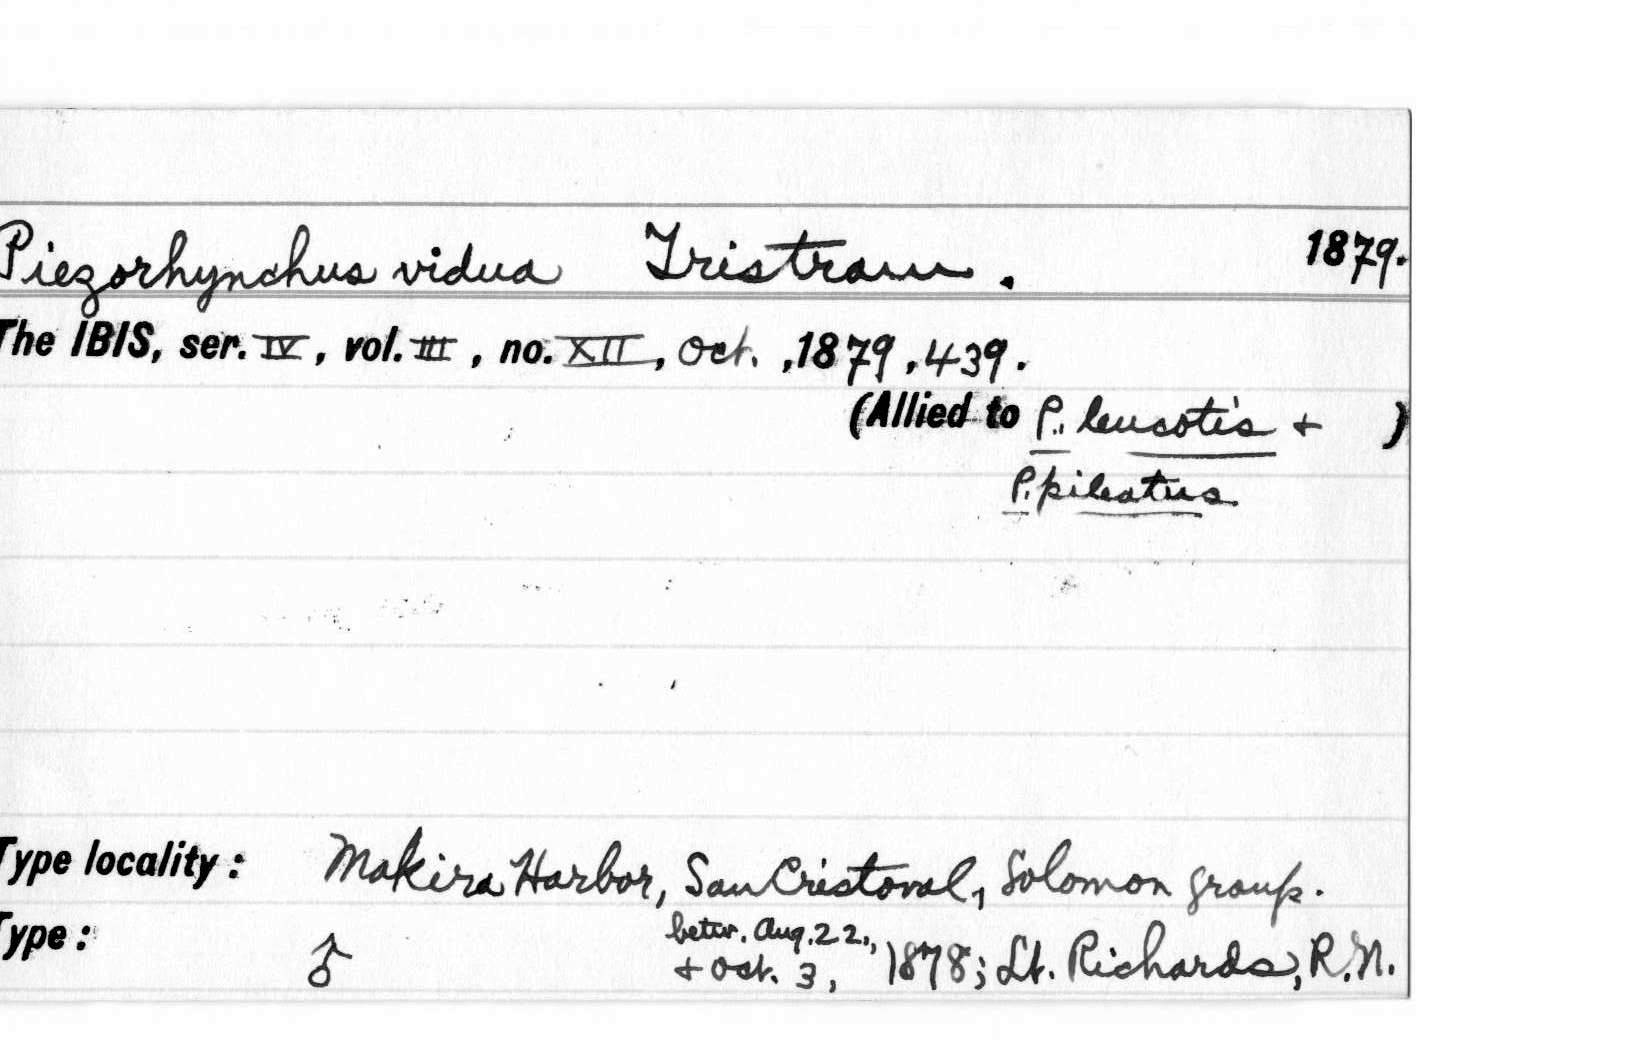 Piezorhynchus vidua Tristram. 1879.
The IBIS, ser. IV, vol. III, no. XII, Oct. ,1879, 439.
(Allied to P. leucotis + )
P. pileatus
Type locality: Makira Harbor, San Cristoval, Solomon group.
Type: ♂ betw. Aug. 22., + Oct. 3, 1878; Lt. Richards, R.N.